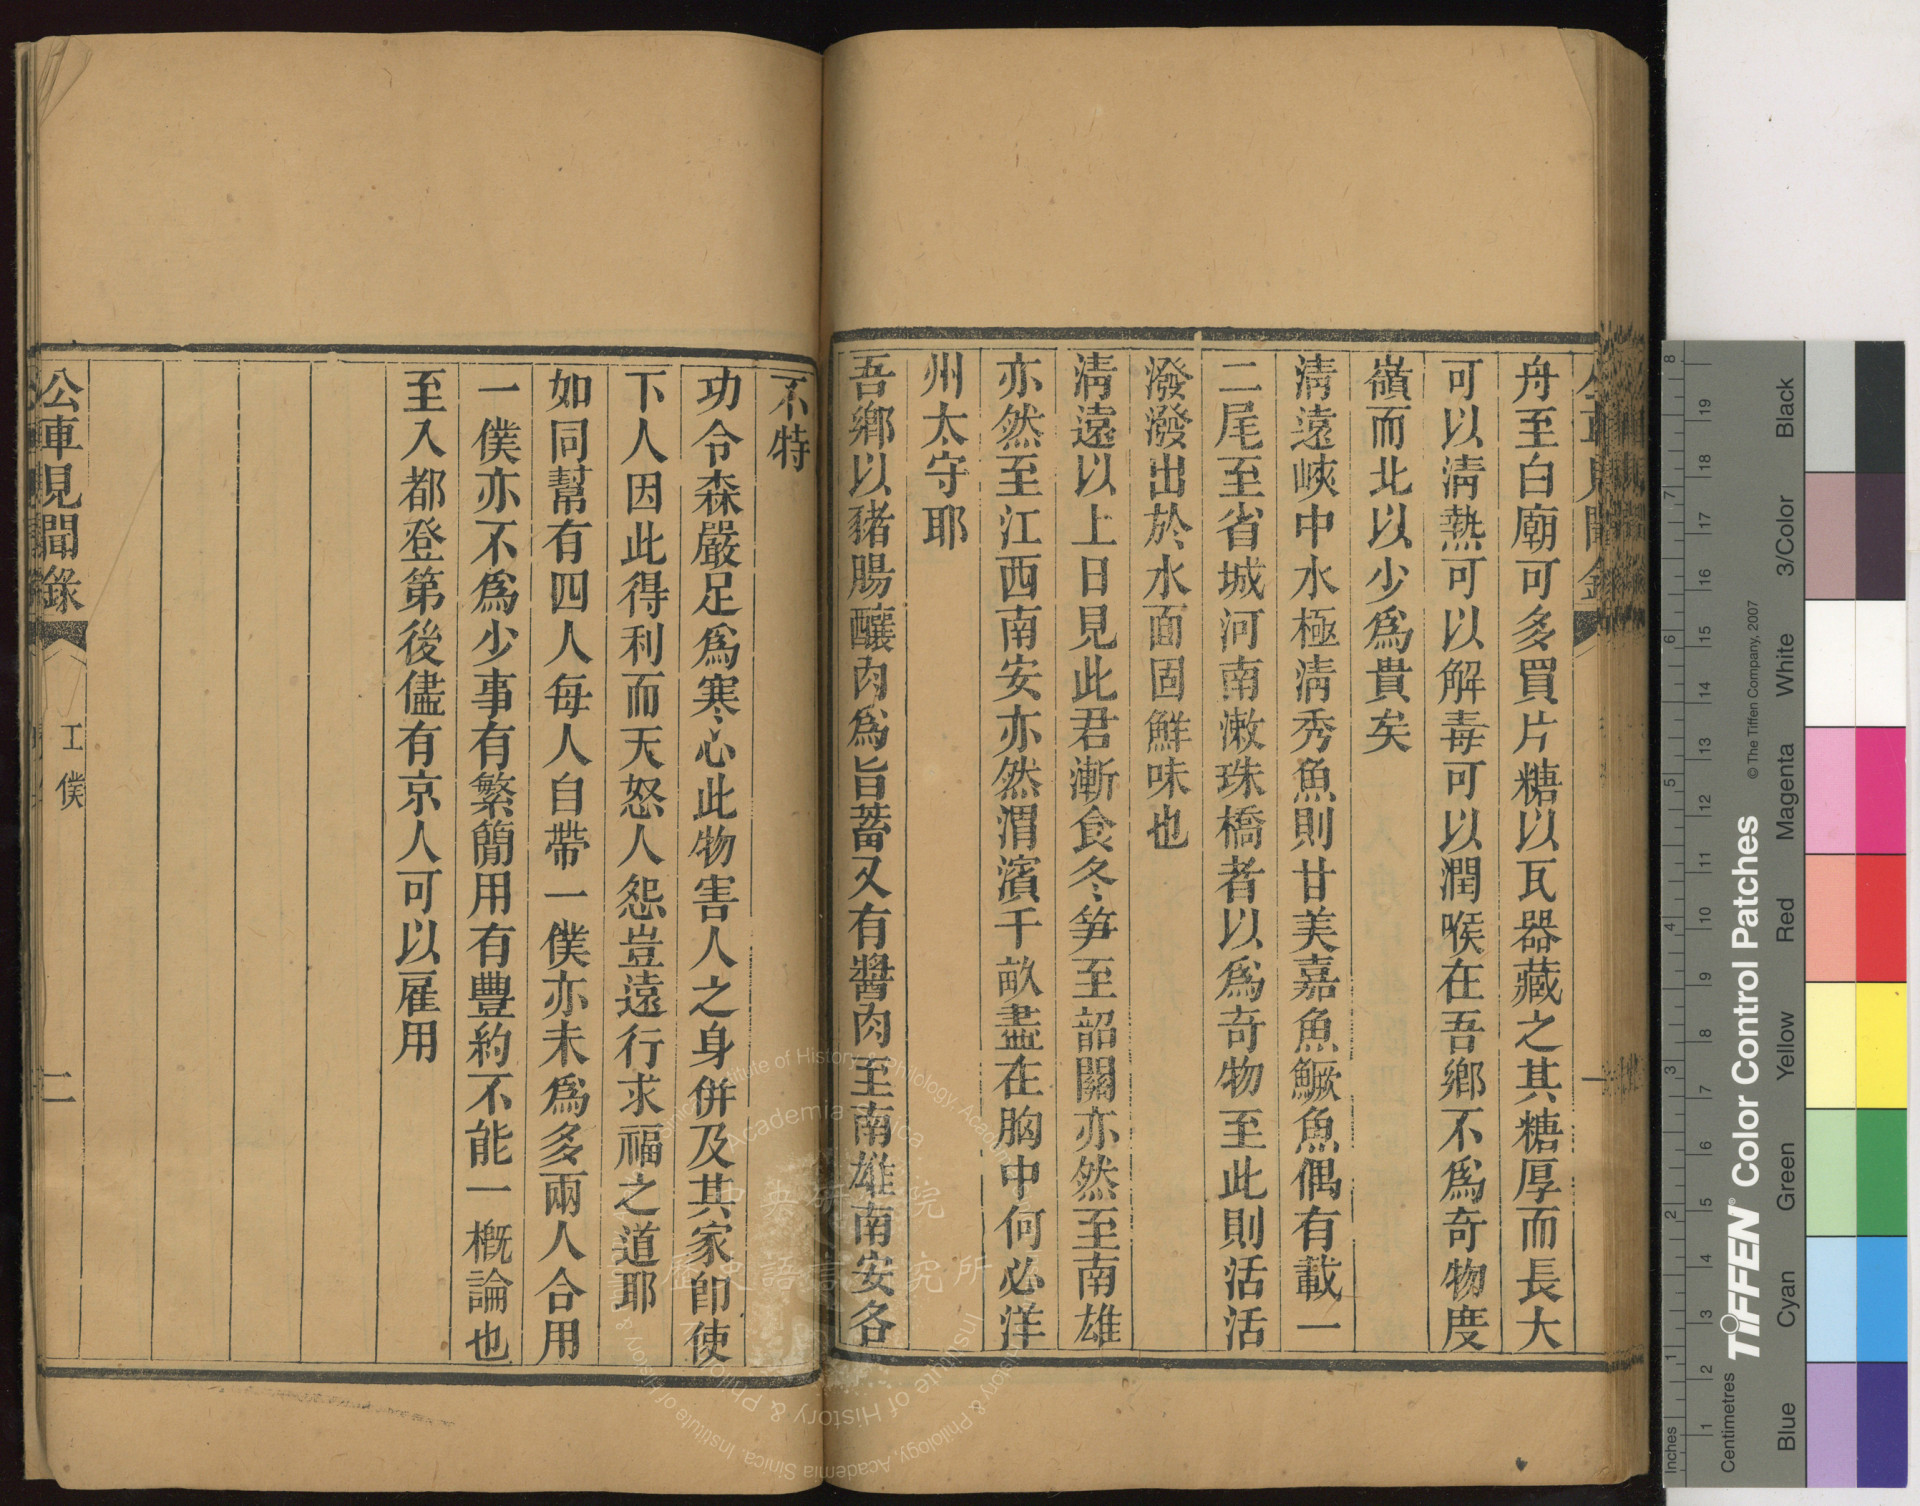 舟至白廟可多買片糖以瓦器藏之其糖厚而長大
可以淸熱可以解毒可以潤喉在吾鄉不爲奇物度
嶺而北以少爲貴矣
淸遠峽中水極淸秀魚則甘美嘉魚鱖魚偶有載一
二尾至省城河南漱珠橋者以爲奇物至此則活活
潑潑出於水面固鮮味也
淸遠以上日見此君漸食冬筍至韶關亦然至南雄
亦然至江西南安亦然渭濱千畝盡在胸中何必洋
州太守耶
吾鄉以豬腸釀肉爲旨蓄又有醬肉至南雄南安各
不特
功令森嚴足爲寒心此物害人之身併及其家卽使
下人因此得利而天怒人怨豈遠行求福之道耶
如同幫有四人每人自帶一僕亦未爲多兩人合用
一僕亦不爲少事有繁簡用有豐約不能一概論也
至入都登第後儘有京人可以雇用
公車見聞錄 工僕 二
中央研究院
歷史語言研究所
Institute of History & Philology, Academia Sinica
Inches
Centimetres
TIFFEN® Color Control Patches
© The Tiffen Company, 2007
Blue Cyan Green Yellow Red Magenta White 3/Color Black